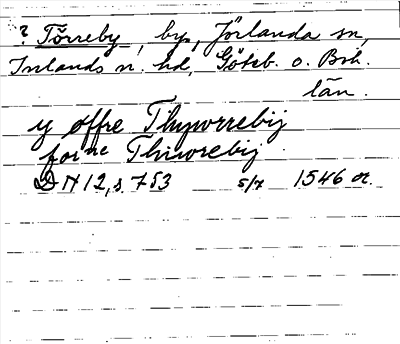 ? Törreby, by, Jörlanda sn,
Inlands n. hd, Göteb. o. Boh.
län.
y offre Thyworrebij
forne Thiworebij
DN 12, s. 753 5/7 1546 or.